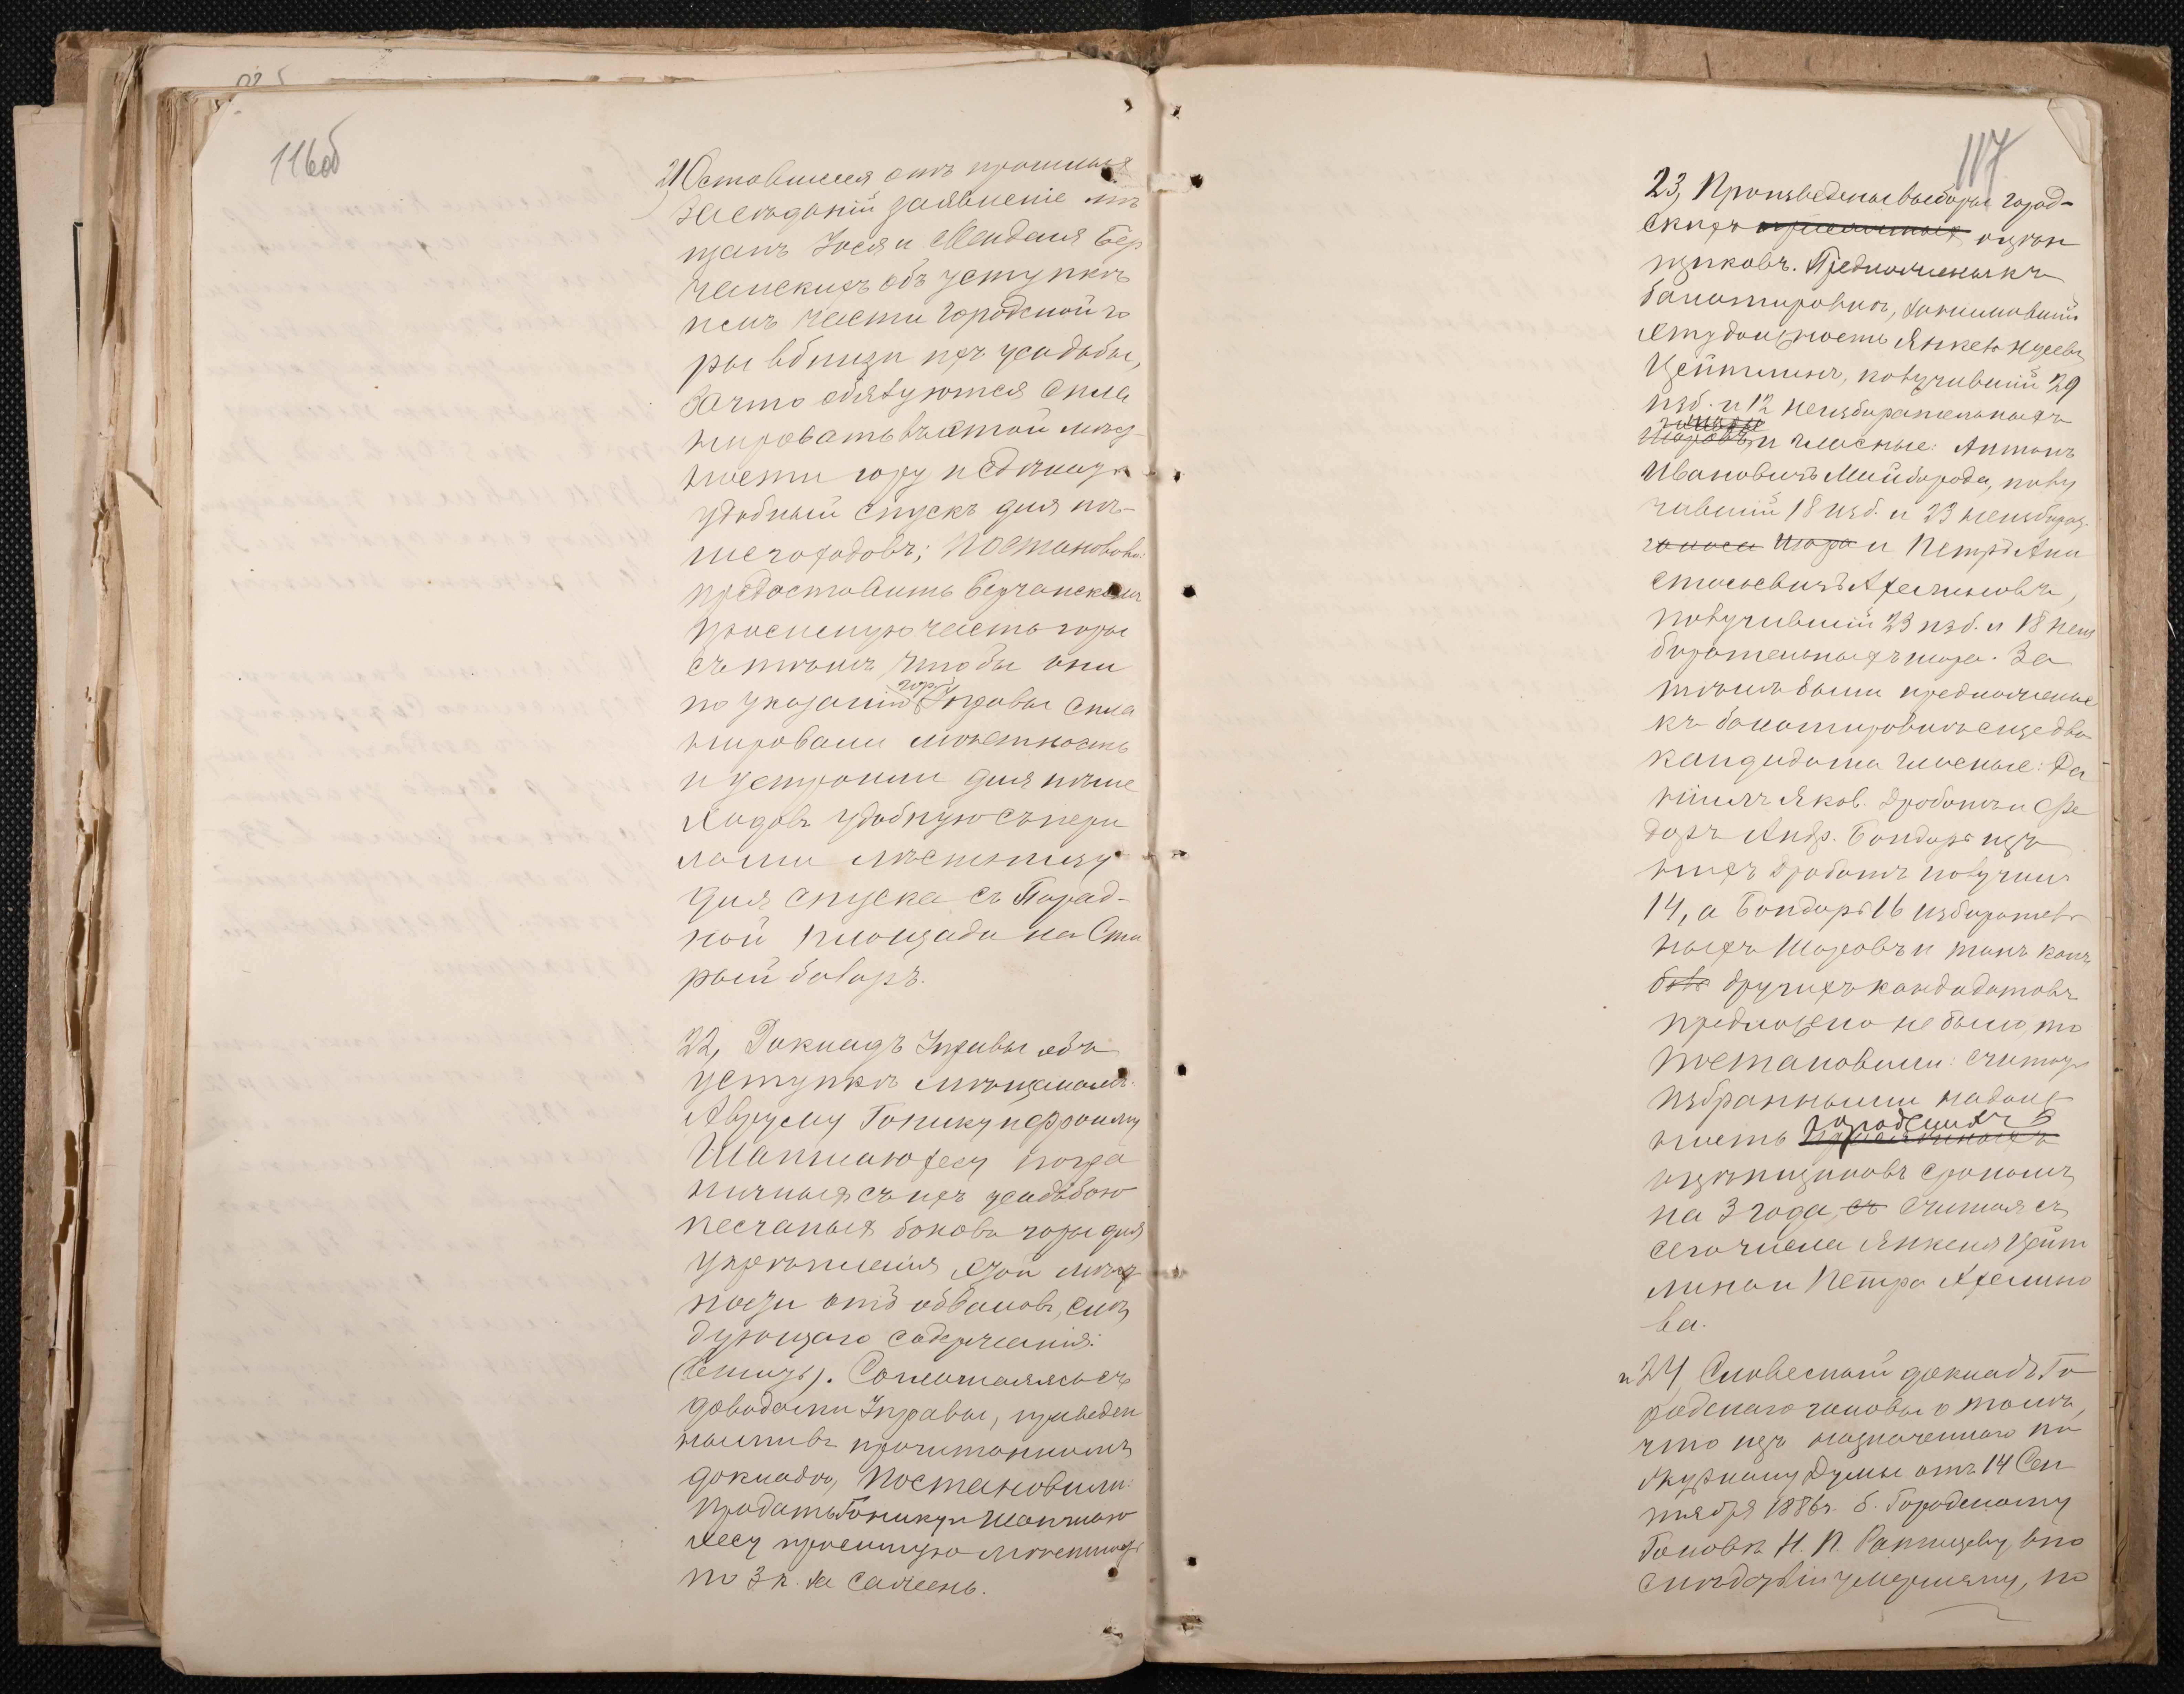 116об
21) Оставшееся отъ прошлыхъ
засѣданій заявленіе мѣ
щанъ Іося и Менделя Бер
чанскихъ объ уступкѣ
имъ части городской го
ры вблизи ихъ усадьбы,
за что обязуются спла
нировать въ этой мѣст
ности гору и сдѣлать
удобный спускъ для пѣ-
шеходовъ; постановили:
предоставить Берчанскимъ
просимую часть горы
съ тѣмъ, чтобы они
по указанію Гор. Управы спла
нировали мѣстность
и устроили для пѣше
ходовъ удобную съ пери
лами лѣстницу
для спуска съ Парад-
ной площади на Ста
рый базаръ.
22, Докладъ Управы объ
уступкѣ мѣщанамъ
Аврууму Гонику и Фроиму
Шапшаю Хесу погра
ничныя съ ихъ усадьбою
песчаныя боковы горы для
укрѣпленія этой мѣст
ности отъ обваловъ, слѣ
дующаго содержанія:
(читать). Соглашаясь съ
доводами Управы, приведен
ными въ прочитанномъ
докладѣ, постановили:
продать Гонику и Шапшаю
Хесу просимую мѣстность
по 3 к. за сажень.
117
23, Произведены выборы город-
скихъ присяжныхъ оцѣн
щиковъ. Предложены къ
балотировкѣ, занимавшій
эту должность Янкель
Цейтлинъ, получившій 29
изб. и 12 неизбирательныхъ
шаровъ, и гласные: Антонъ
Ивановичъ Майборода, полу
чившій 18 изб. и 23 неизбират.
голоса шара и Петръ Ана
стасьевичъ Афелиновъ,
получившій 23 изб. и 18 неиз
бирательныхъ шара. За
тѣмъ были предложены
къ балотировкѣ еще два
кандидата гласные: Да
ніилъ Яков. Дроботъ и Фе
доръ Андр. Бондарь изъ
нихъ Дроботъ получилъ
14, а Бондарь 16 избиратель
ныхъ шаровъ и такъ какъ
бол другихъ кандидатовъ
предложено не было, то
постановили: считать
избранными на долж
ность городскихъ присяжныхъ
оцѣнщиковъ срокомъ
на 3 года, съ считая съ
сего числа Янкеля Цейт
лина и Петра Афелино
ва.
и 24, Словесный докладъ Го
родскаго головы о томъ,
что изъ назначеннаго по
журналу Думы отъ 14 Сен
тября 1886 г. б. Городскому
Головѣ Н. П. впо
слѣдствіи умершему, по